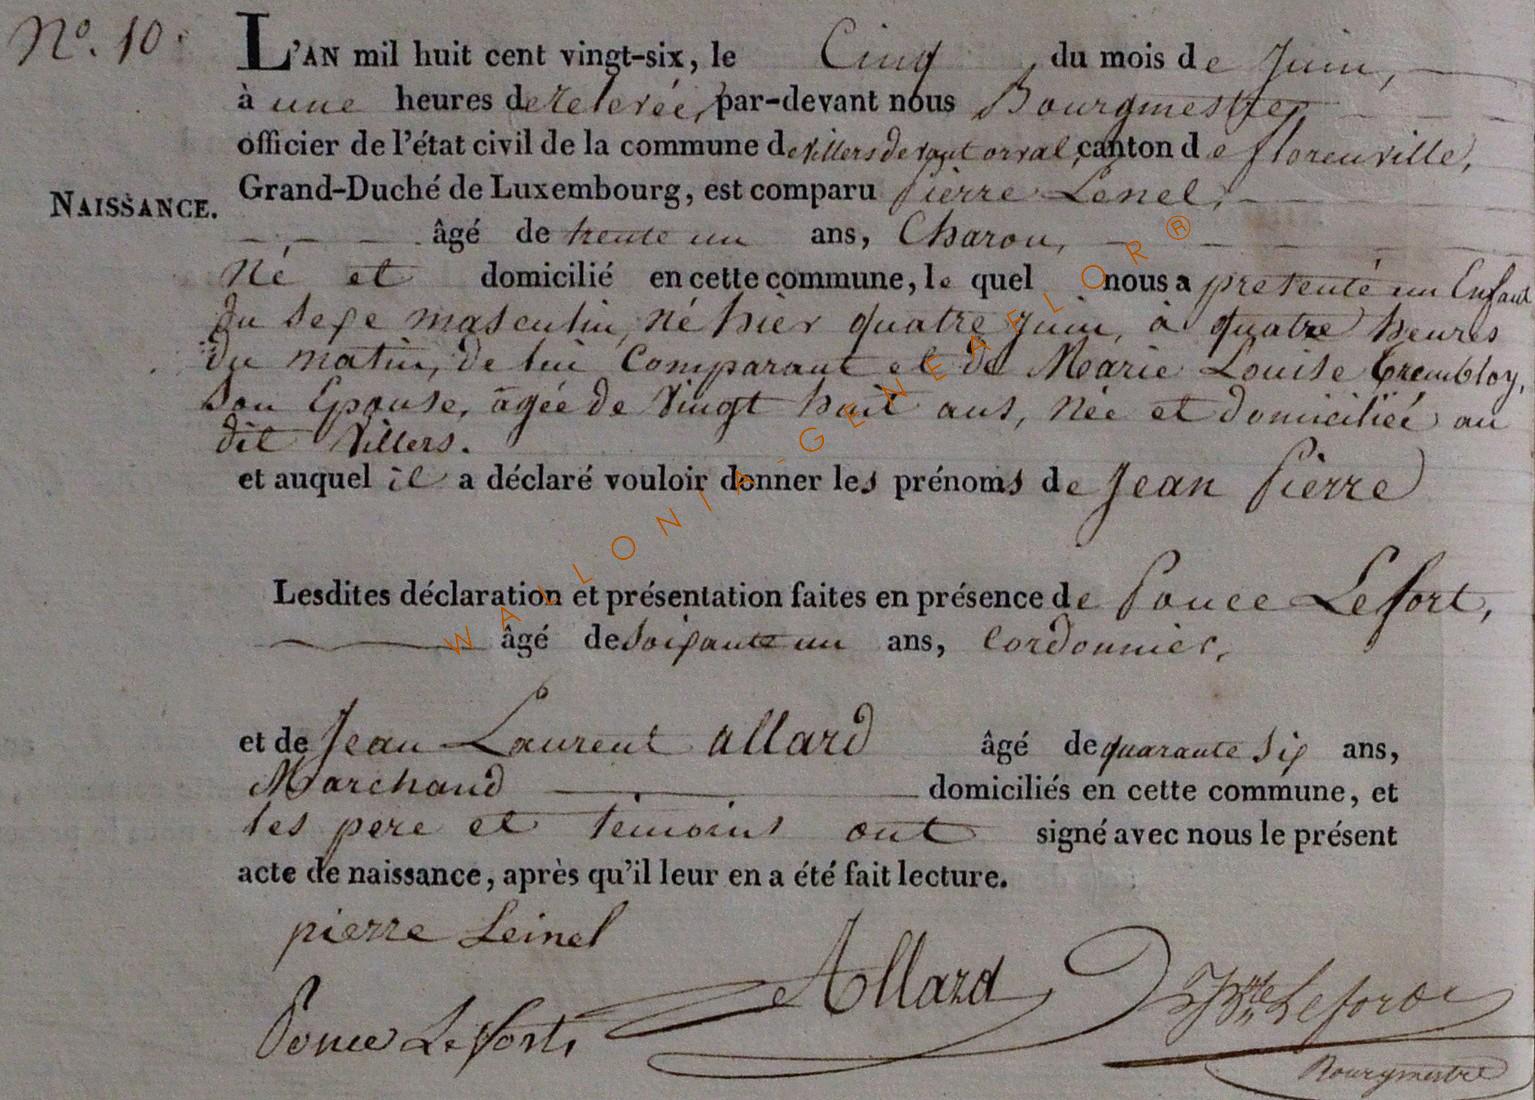 N.o 10.
L'AN mil huit cent vingt-six, le Cinq du mois de Juin,
à une heures de relevée, par-devant nous Bourgmestre,
officier de l'état civil de la commune de Villers devant orval, canton de florenville,
NAISSANCE.
Grand-Duché de Luxembourg, est comparu Pierre Lenel,
âgé de trente un ans, Charon,
né et domicilié en cette commune, le quel nous a presenté un Enfant
du sexe masculin, né hier quatre juin, à quatre heures
du matin, de lui Comparant et de Marie Louise Trembloy,
son Epouse, agée de Vingt huit ans, née et domiciliée au
dit Villers.
et auquel il a déclaré vouloir donner les prénoms de Jean Pierre
Lesdites déclaration et présentation faites en présence de Ponce Lefort,
âgé de soixante un ans, Cordonnier,
et de Jean Laurent allard âgé de quarante six ans,
Marchand domiciliés en cette commune, et
les pere et temoins ont signé avec nous le présent
acte de naissance, après qu'il leur en a été fait lecture.
pierre Leinel
Allard
Ponce Lefort,
Lefort
Bourgmestre
WALLONIA-GENEAFLOR®